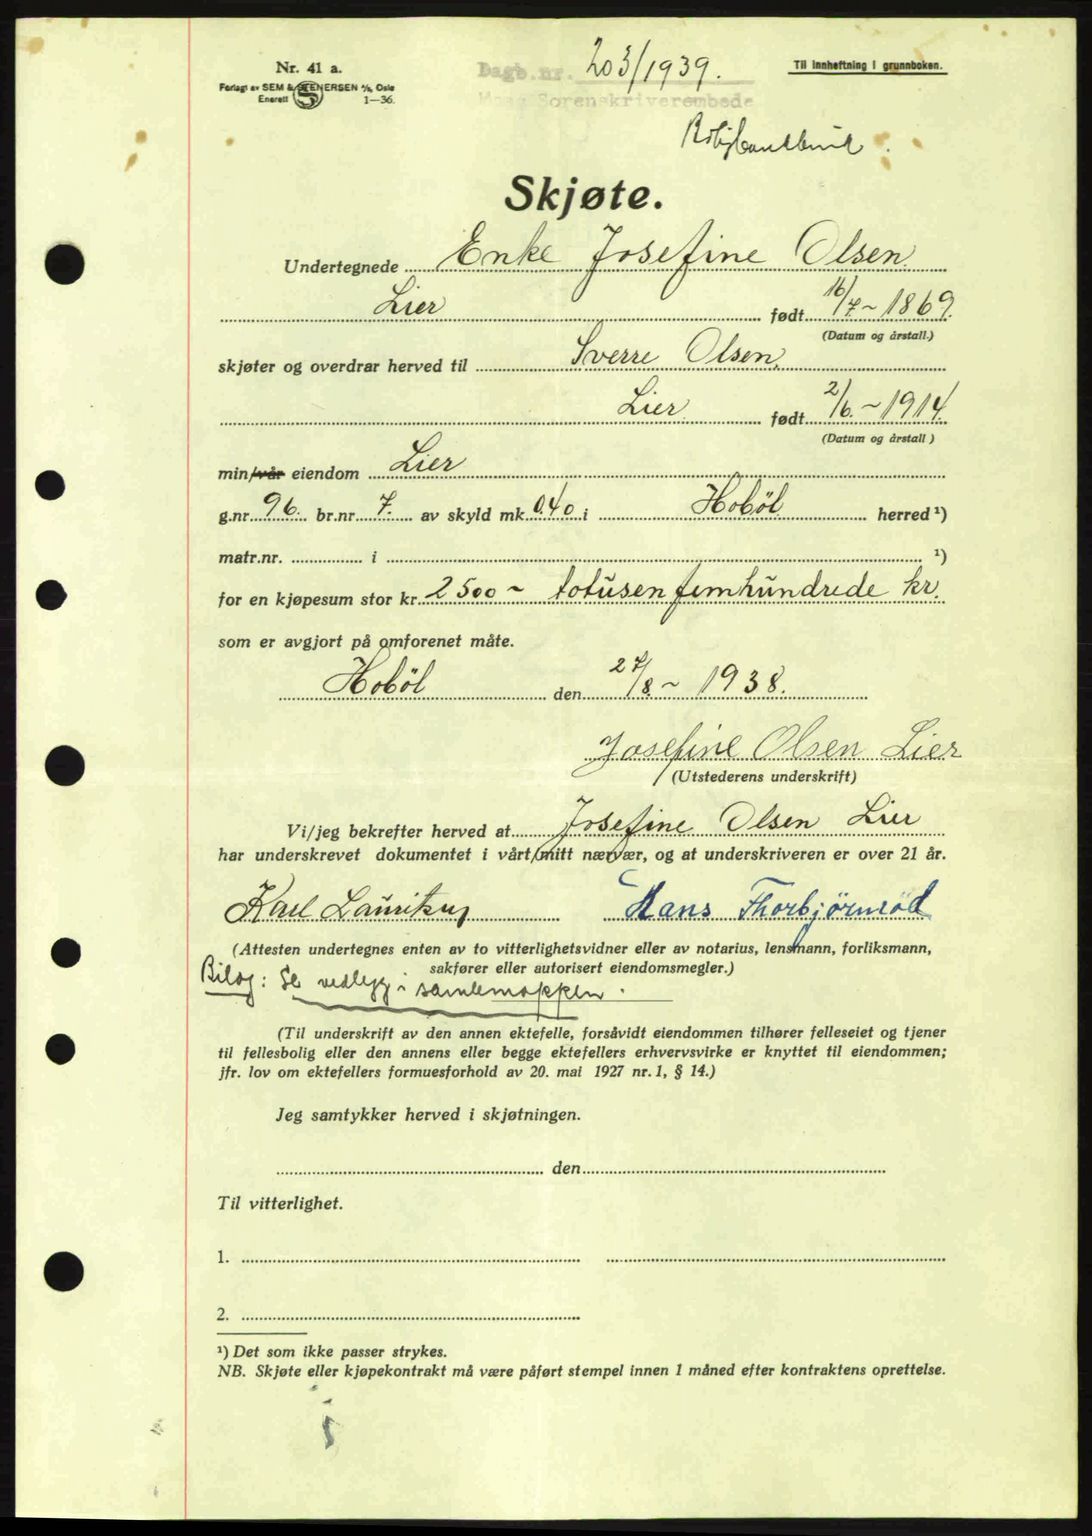 Nr. 41 a.
Forlagt av SEM & STENERSEN A/S, Oslo
Enerett 1—36.
Dagb.nr. 203/1939.
Moss Sorenskriverembede
Til innheftning i grunnboken.
Skjøte.
Undertegnede Enke Josefine Olsen
Lier født 16/7 - 1869.
(Datum og årstall.)
skjøter og overdrar herved til Sverre Olsen,
Lier født 2/6. - 1914.
(Datum og årstall)
min/vår eiendom Lier
g.nr. 96. br.nr. 7. av skyld mk. 0.40 i Hoböl herred ¹)
matr.nr. i ¹)
for en kjøpesum stor kr. 2500 - totusen femhundrede kr.
som er avgjort på omforenet måte.
Hoböl den 27/8 - 1938.
Josefine Olsen Lier
(Utstederens underskrift)
Vi/jeg bekrefter herved at Josefine Olsen Lier
har underskrevet dokumentet i vårt/mitt nærvær, og at underskriveren er over 21 år.
Karl Hans Thorbjörnsöd
(Attesten undertegnes enten av to vitterlighetsvidner eller av notarius, lensmann, forliksmann,
sakfører eller autorisert eiendomsmegler.)
Bilag: Se vedlegg i samlemappen.
(Til underskrift av den annen ektefelle, forsåvidt eiendommen tilhører felleseiet og tjener
til fellesbolig eller den annens eller begge ektefellers erhvervsvirke er knyttet til eiendommen;
jfr. lov om ektefellers formuesforhold av 20. mai 1927 nr. 1, § 14.)
Jeg samtykker herved i skjøtningen.
den
Til vitterlighet.
1.
2.
¹) Det som ikke passer strykes.
NB. Skjøte eller kjøpekontrakt må være påført stempel innen 1 måned efter kontraktens oprettelse.